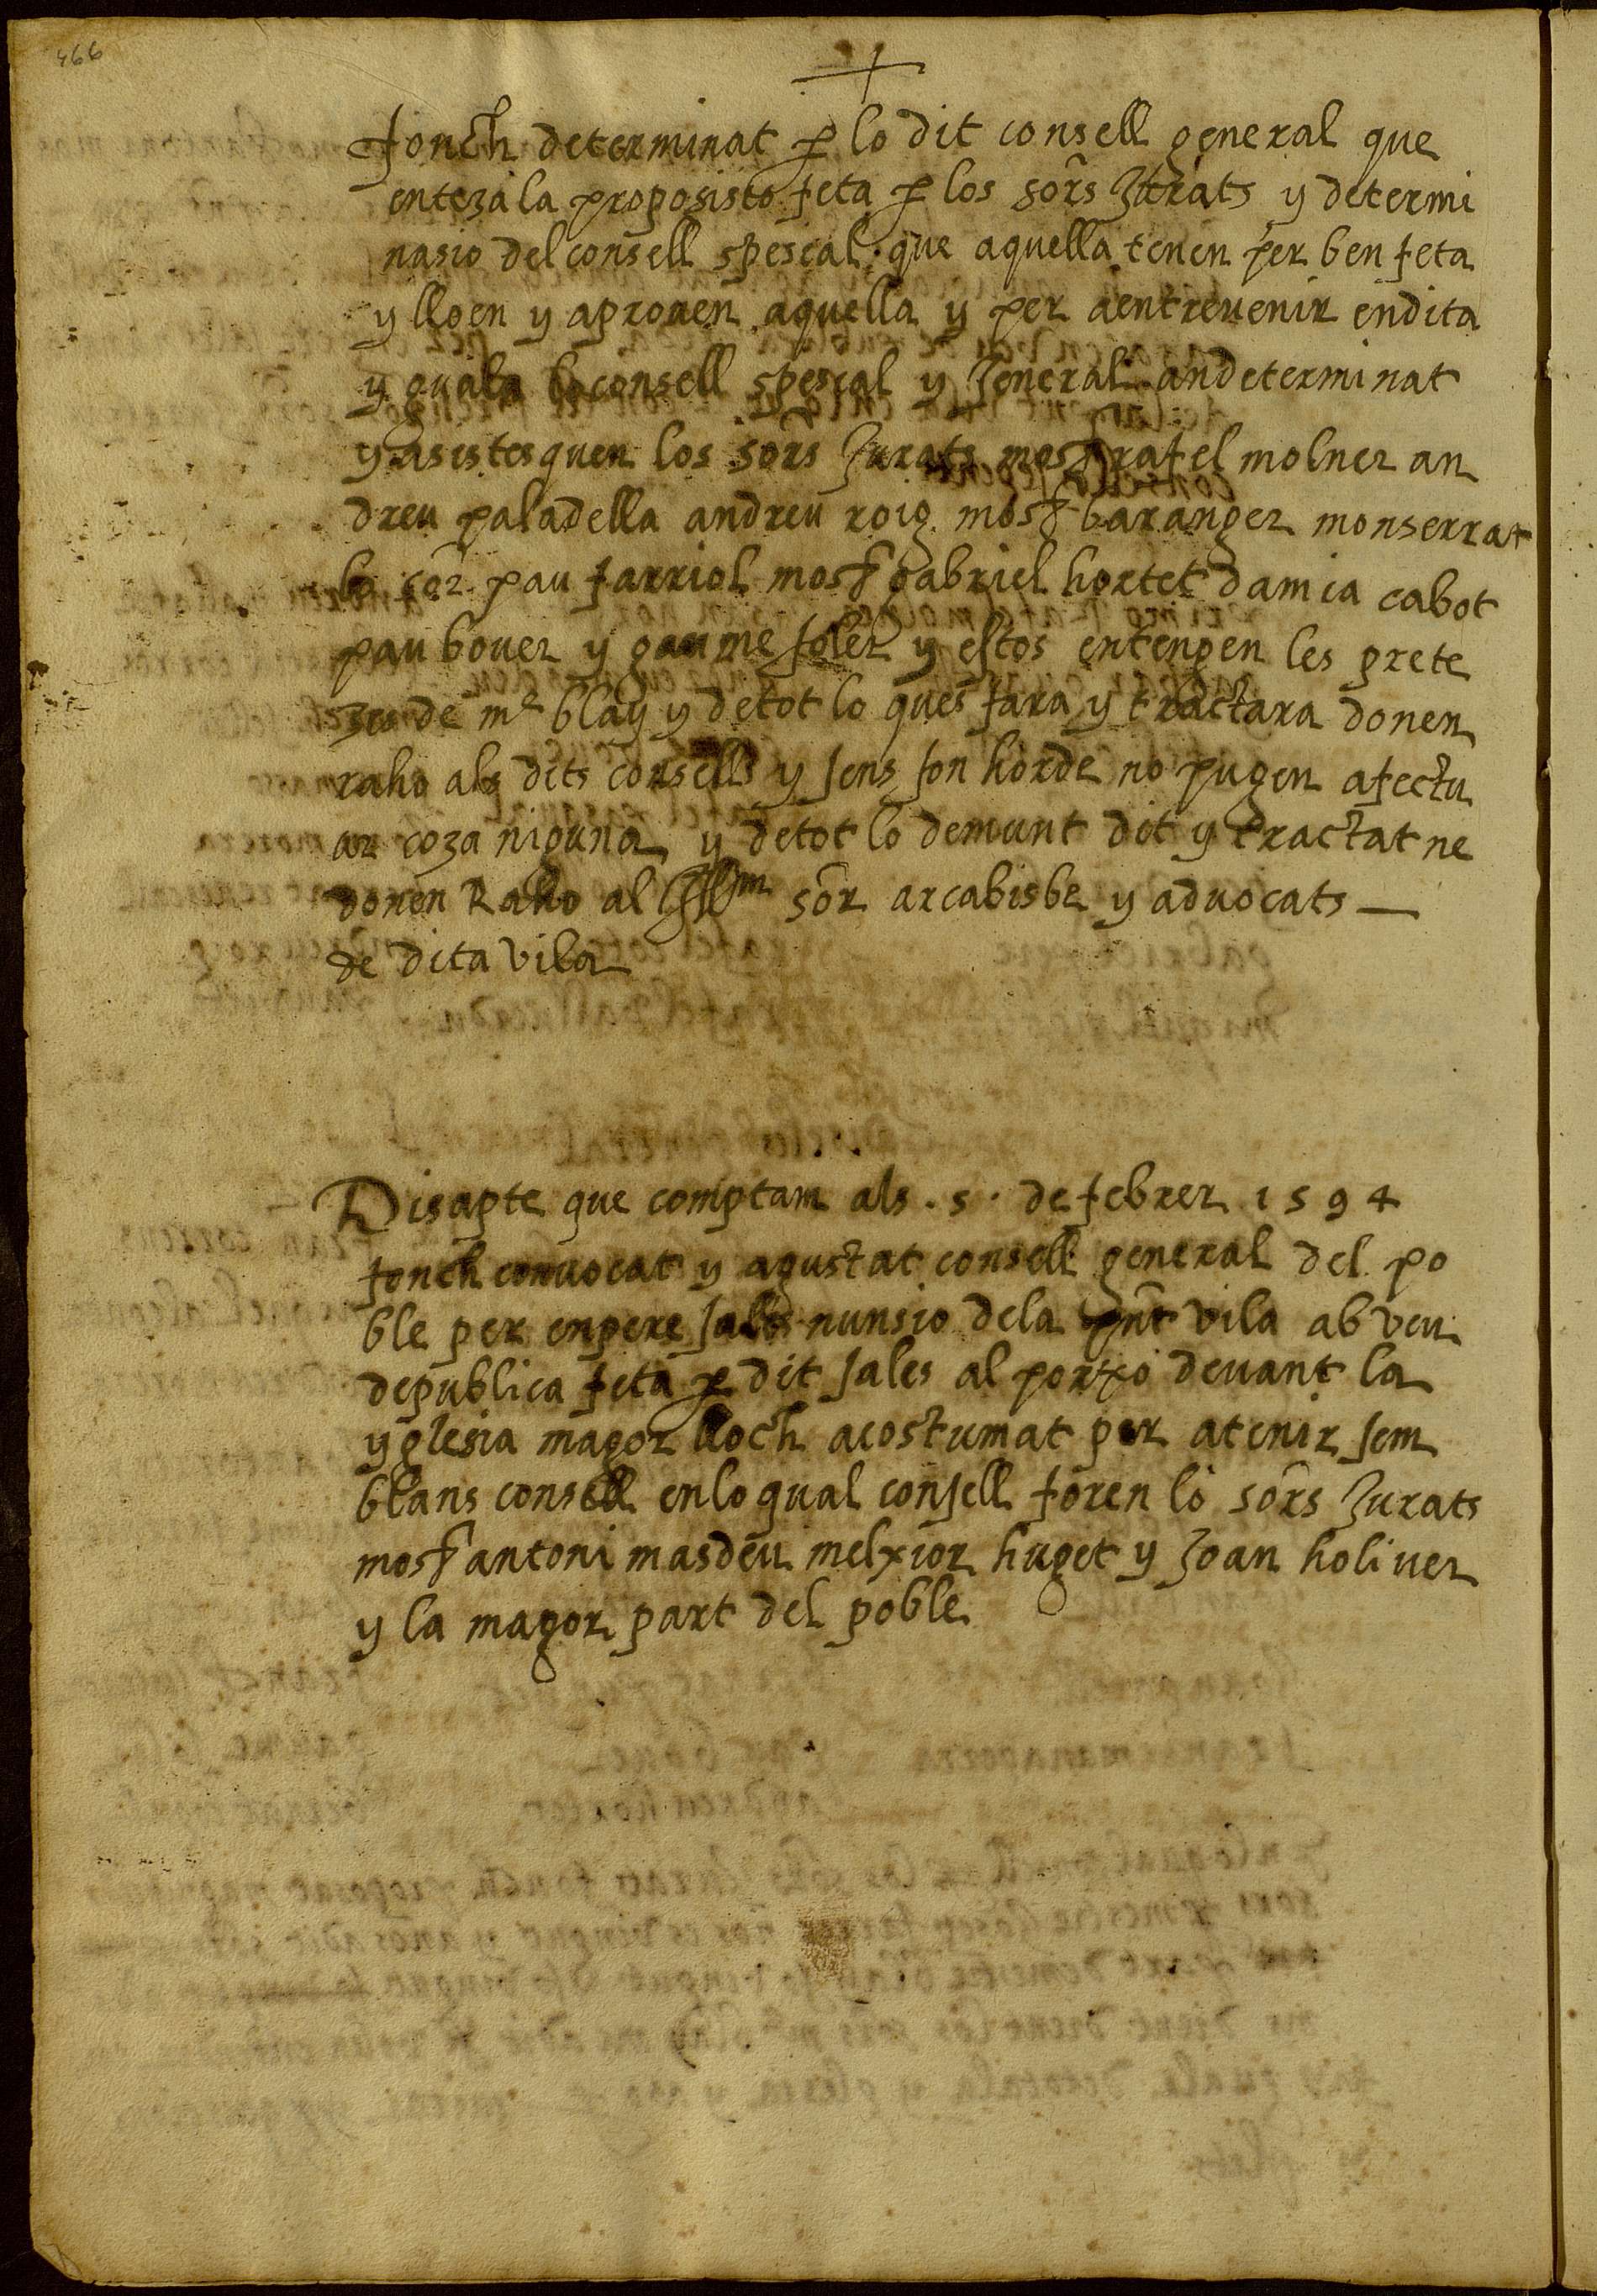 466
fonch determinat p lo dit consell general que
enteza la proposisio feta p los sors Jurats y determi
nasio del consell spesial que aquella tenen per ben feta
y lloen y aproven aquella y per aentrevenir en dita
consell spesial y Jeneral an determinat
y asistesquen los sors Jurats mosr rafel molner an
dreu paladella andreu roig mosr baranger monserrat
lo sor pau farriol mosr gabriel hortet damia cabot
pau bover y gaume soler y estos entengen les prete
zis de mr blay y de tot lo ques fara y tractara donen
raho als dits consells y sens son horde no pugen afectu
ar coza niguna y de tot lo demunt dit y tractat ne
donen Raho al Illm sor arcabisbe y advocats —
de dita vila
Disapte que comptam als . 5 . de febrer 1594
fonch convocat y agustat consell general del po
ble per enpere sales nunsio dela pnt vila ab veu
de publica feta p dit sales al portxo devant la
yglesia magor lloch acostumat per atenir sem
blans consell enlo qual consell foren lo sors Jurats
mosr antoni masdeu melxior huget y Joan holiver
y la magor part del poble